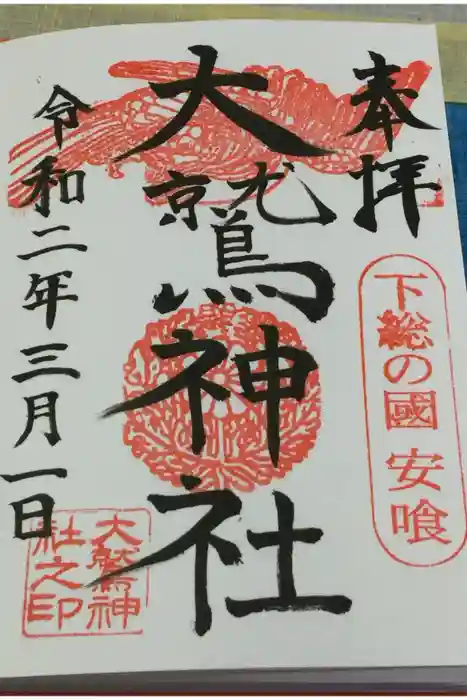 奉拝
下総の國 安喰
大鷲神社
令和二年三月一日
大鷲神
社之印